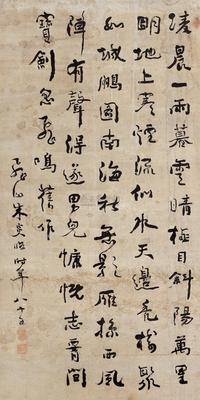 凌晨一雨暮雲晴極目斜陽萬里
明地上寒煙流似水天邊樹聚
如城鵬圖南海秋無影雁掠西風
陣有聲得遂男兒慷慨志間
寶劍忽飛鳴舊作
山朱時年八十五